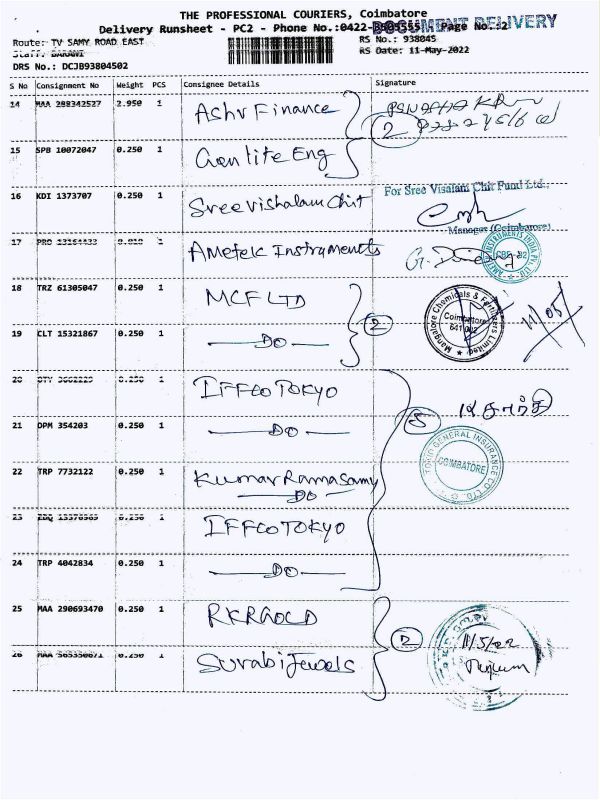 THE PROFESSIONAL COURIERS, Coimbatore
DOCUMENT DELIVERY
Delivery Runsheet - PC2 - Phone No.:0422- Page No.:2
Route: TV SAMY ROAD EAST
RS No.: 938045
Staff: BARANI
RS Date: 11-May-2022
DRS No.: DCJB93804502
S No Consignment No Weight PCS Consignee Details Signature
14 MAA 288342527 2.950 1 Ashv Finance
2
15 SPB 10072047 0.250 1
16 KDI 1373707 0.250 1 Sree Vishalam Chit For Sree Visalam Chit Fund Ltd.,
Manager (Coimbatore)
17 1 Ametek Instruments
18 TRZ 61305047 0.250 1 MCF LTD Mangalore Chemicals & Fertilizers Limited Coimbatore
2
19 CLT 15321867 0.250 1 DO
20 0.250 1 IFFCO TOKYO
5
21 DPM 354203 0.250 1 DO
TOKIO GENERAL INSURANCE CO LTD. COIMBATORE
22 TRP 7732122 0.250 1 Kumar Ramasamy
DO
23 0.250 1 IFFCO TOKYO
24 TRP 4042834 0.250 1 DO
25 MAA 290693470 0.250 1 RKR GOLD
2 11/5/22
26 0.250 1 Surabi Jewels